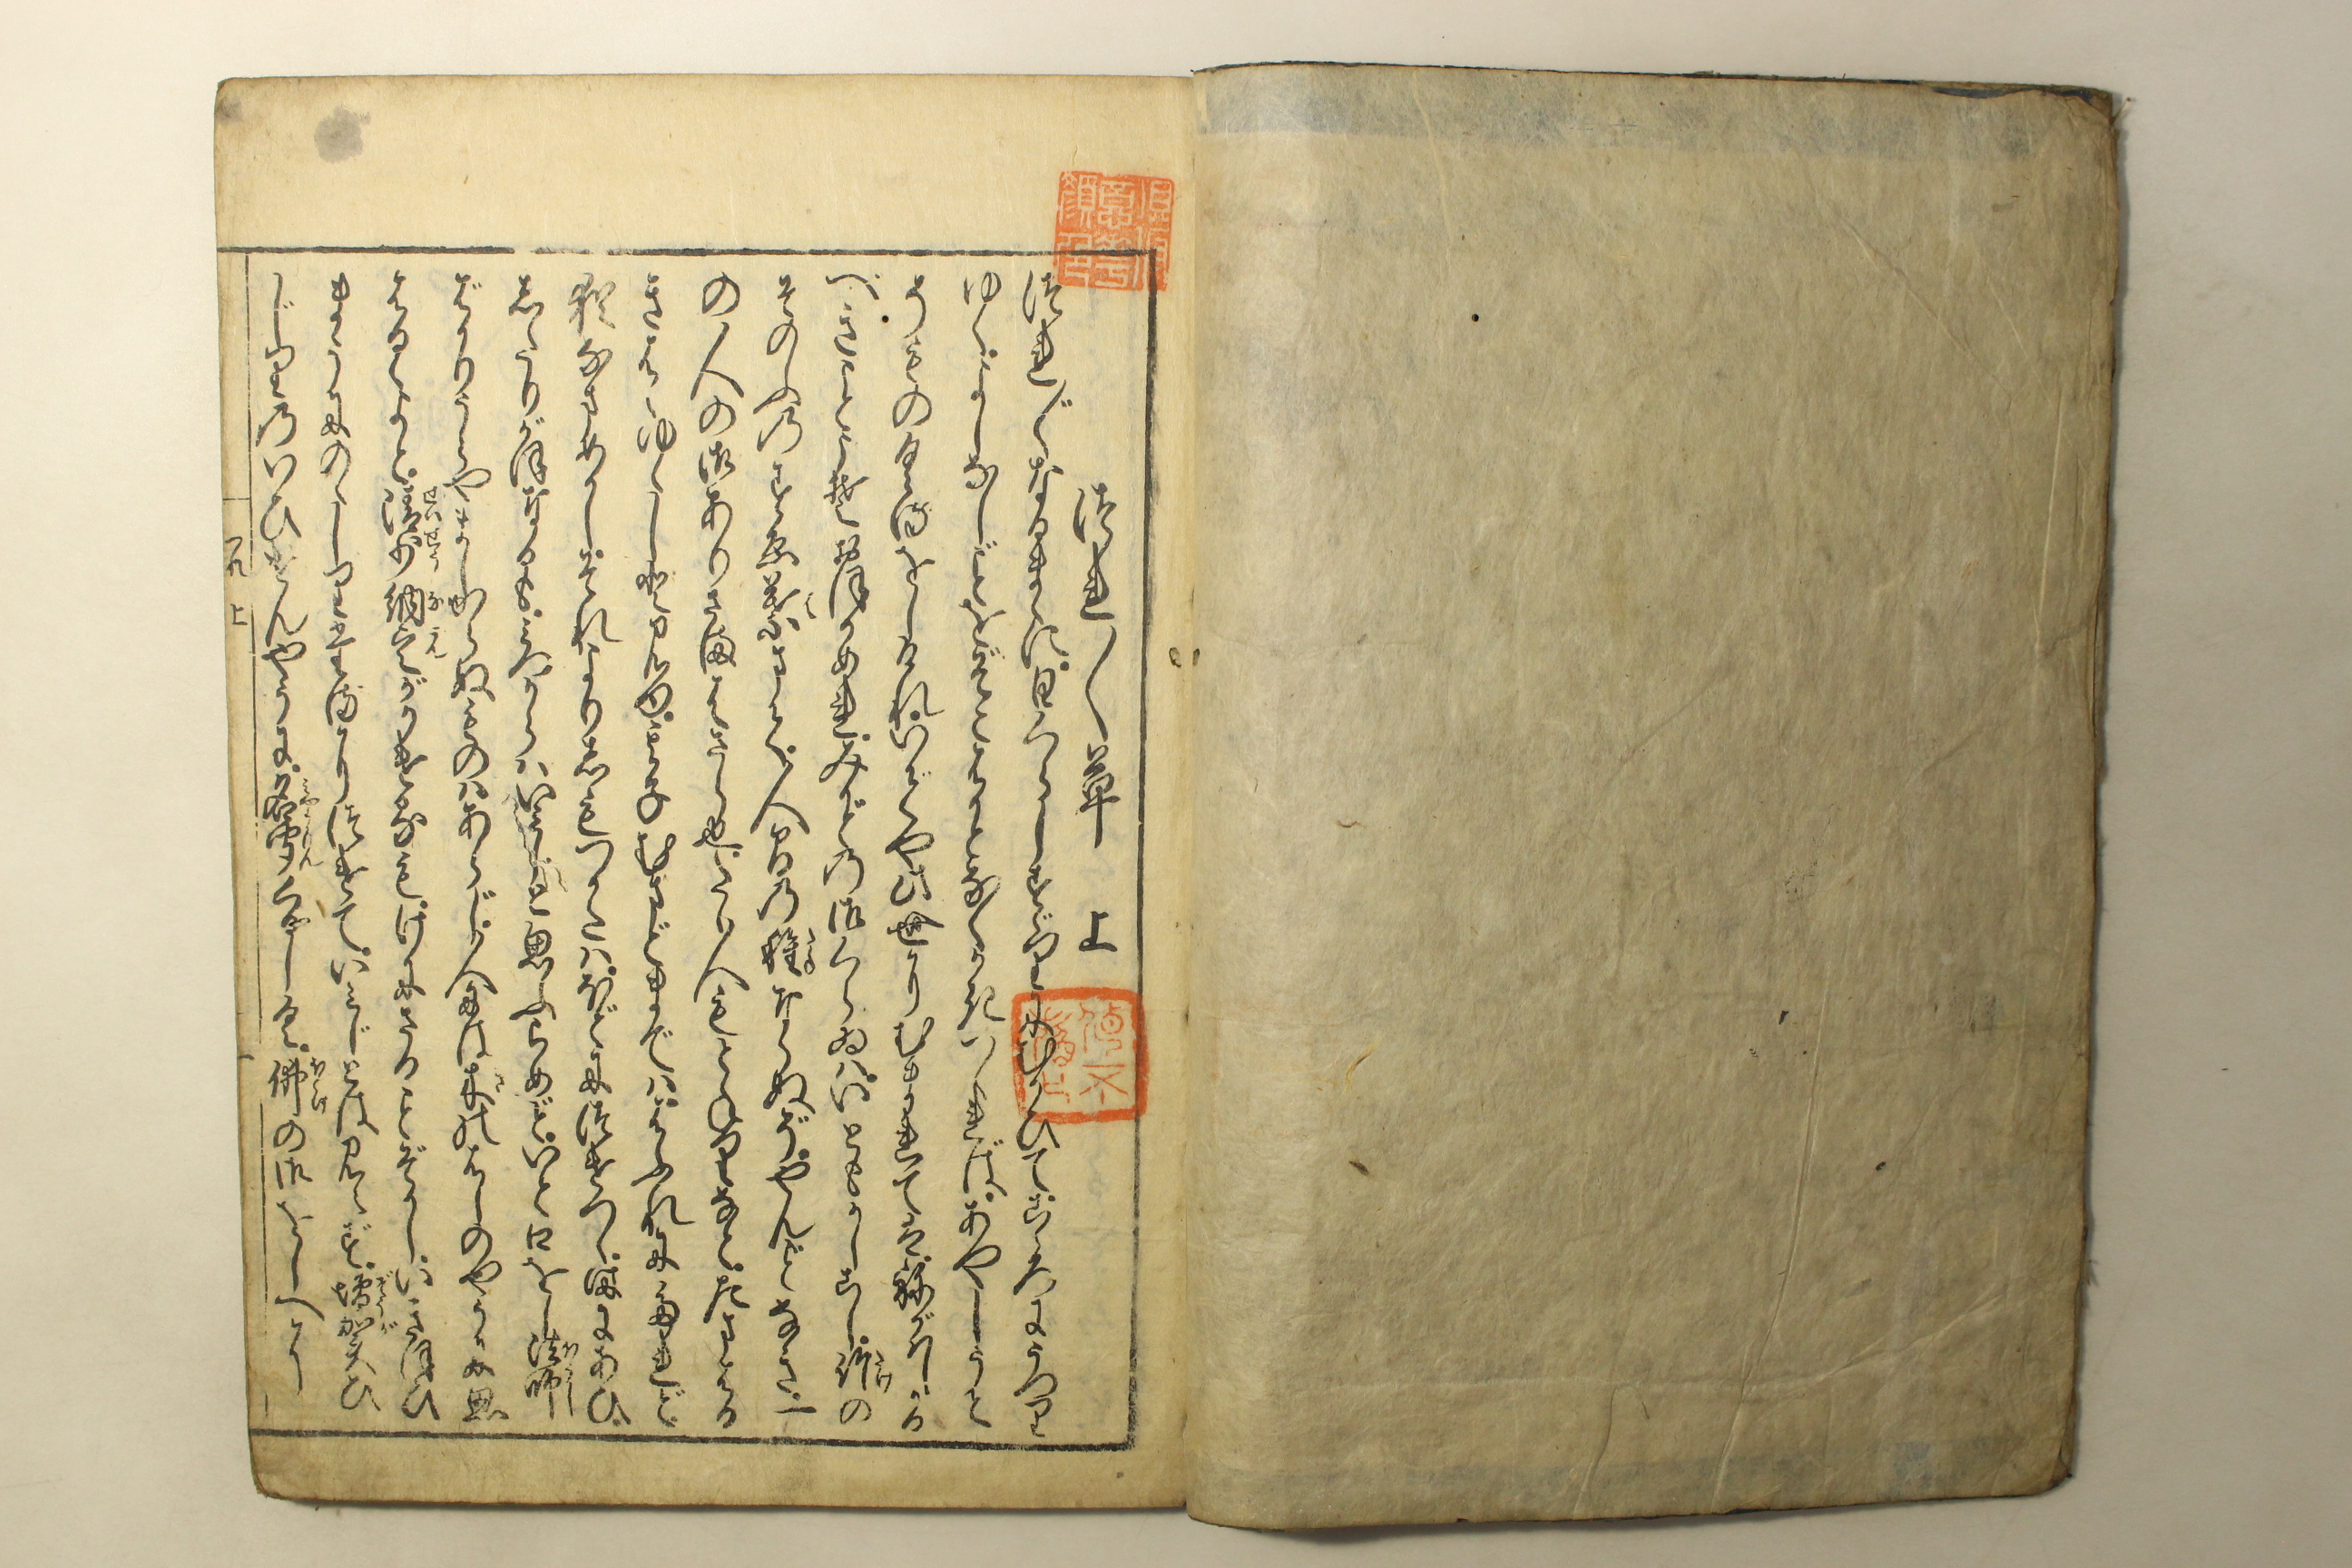 つれ〲草　上
つれ〲なるまゝに日くらしすゞりにむかひてこゝろにうつり
ゆくよしなしごとをそこはかとなくかきつくればあやしうこ
そものぐるほしけれいでや此世にむまれてはねがはしかる
べきことこそおほかめれみかどの御くらゐはいともかしこし竹の
そのふのすゑ葉まで人間の種ならぬぞやんごとなき一
の人の御ありさまはさら也たゞ人もとねりなど給はる
きはゝゆゝしと見ゆそのこむまごまではゝふれにたれど
猶なまめかしそれよりしもつかたはほどにつけつゝ時にあひ
したりがほなるもみづからはいみじと思ふらめどいと口をし法師
ばかりうら山しからぬものはあらじ人には木のはしのやうに思
はるゝよと清少納言がかけるもげにさることぞかしいきほひ
まうにのゝしりたるにつけていみじとは見えず増賀ひ
じりのいひけんやうに名聞くるしく佛の御をしへに
つれ　上